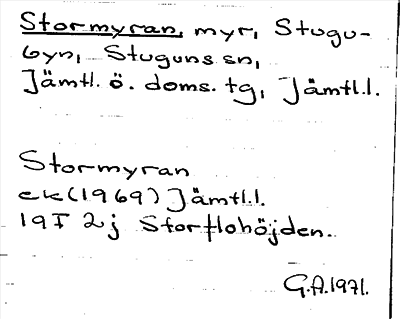 Stormyran, myr, Stugu-
byn, Stuguns sn,
Jämtl. ö. doms. tg, Jämtl.l.
Stormyran
ek (1969) Jämtl.l.
19F 2j Storflohöjden.
G.A.1971.